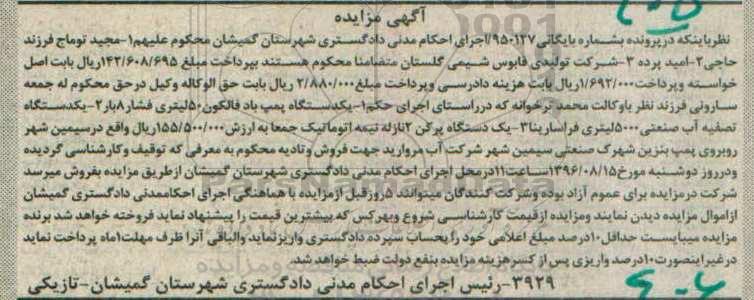 آگهی مزایده
نظر باینکه در پرونده بشماره بایگانی ۹۵۰۱۲۷/اجرای احکام مدنی دادگستری شهرستان گمیشان محکوم علیهم ۱-مجید توماج فرزند
حاجی ۲-امید پرده ۳-شرکت تولیدی قابوس شیمی گلستان متضامنا محکوم هستند بپرداخت مبلغ ۱۴۲/۶۰۸/۶۹۵ریال بابت اصل
خواسته وپرداخت ۱/۶۹۲/۰۰۰ریال بابت هزینه دادرسی وپرداخت مبلغ ۲/۸۸۰/۰۰۰ ریال بابت حق الوکاله وکیل درحق محکوم له جمعه
سارونی فرزند نظر باوکالت محمد ترخوانه که درراستای اجرای حکم ۱-یکدستگاه پمپ باد فالکون ۵۰لیتری فشار ۸بار ۲-یکدستگاه
تصفیه آب صنعتی ۵۰۰۰لیتری فراسارینا ۳-یک دستگاه پرکن ۲نازله نیمه اتوماتیک جمعا به ارزش ۱۵۵/۵۰۰/۰۰۰ریال واقع درسیمین شهر
روبروی پمپ بنزین شهرک صنعتی سیمین شهر شرکت آب مروارید جهت فروش وتادیه محکوم به معرفی که توقیف وکارشناسی گردیده
ودرروز دوشنبه مورخ ۱۳۹۶/۰۸/۱۵ساعت ۱۱درمحل اجرای احکام مدنی دادگستری شهرستان گمیشان ازطریق مزایده بفروش میرسد
شرکت درمزایده برای عموم آزاد بوده وشرکت کنندگان میتوانند ۵روزقبل ازمزایده با هماهنگی اجرای احکام مدنی دادگستری گمیشان
ازاموال مزایده دیدن نمایند ومزایده ازقیمت کارشناسی شروع وبهرکس که بیشترین قیمت را پیشنهاد نماید فروخته خواهد شد برنده
مزایده میبایست حداقل ۱۰درصد مبلغ اعلامی خود را بحساب سپرده دادگستری واریزنماید والباقی آنرا ظرف مهلت ۱ماه پرداخت نماید
درغیراینصورت ۱۰درصد واریزی پس از کسرهزینه مزایده بنفع دولت ضبط خواهد شد.
۳۹۲۹-رئیس اجرای احکام مدنی دادگستری شهرستان گمیشان-تازیکی